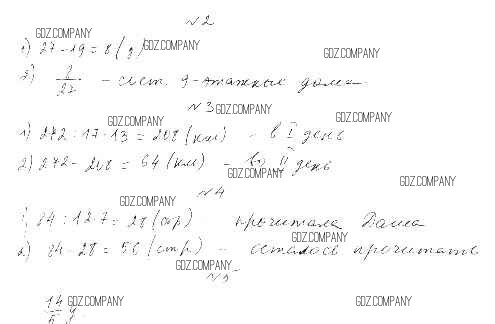 №2
GDZ.COMPANY
1) 27-19=8 (д) GDZ.COMPANY
GDZ.COMPANY
2) 27 - 9-этажные дома
№3 GDZ.COMPANY
GDZ.COMPANY GDZ.COMPANY
1) 272:17·13=208 (км) - в I день
2) 272-208=64 (км) - во II день
GDZ.COMPANY
GDZ.COMPANY
№4
GDZ.COMPANY
1) 84:12·7=28 (стр) - прочитала Даша
GDZ.COMPANY
2) 84-28=56 (стр) - осталось прочитать
GDZ.COMPANY
№5
14 GDZ.COMPANY GDZ.COMPANY